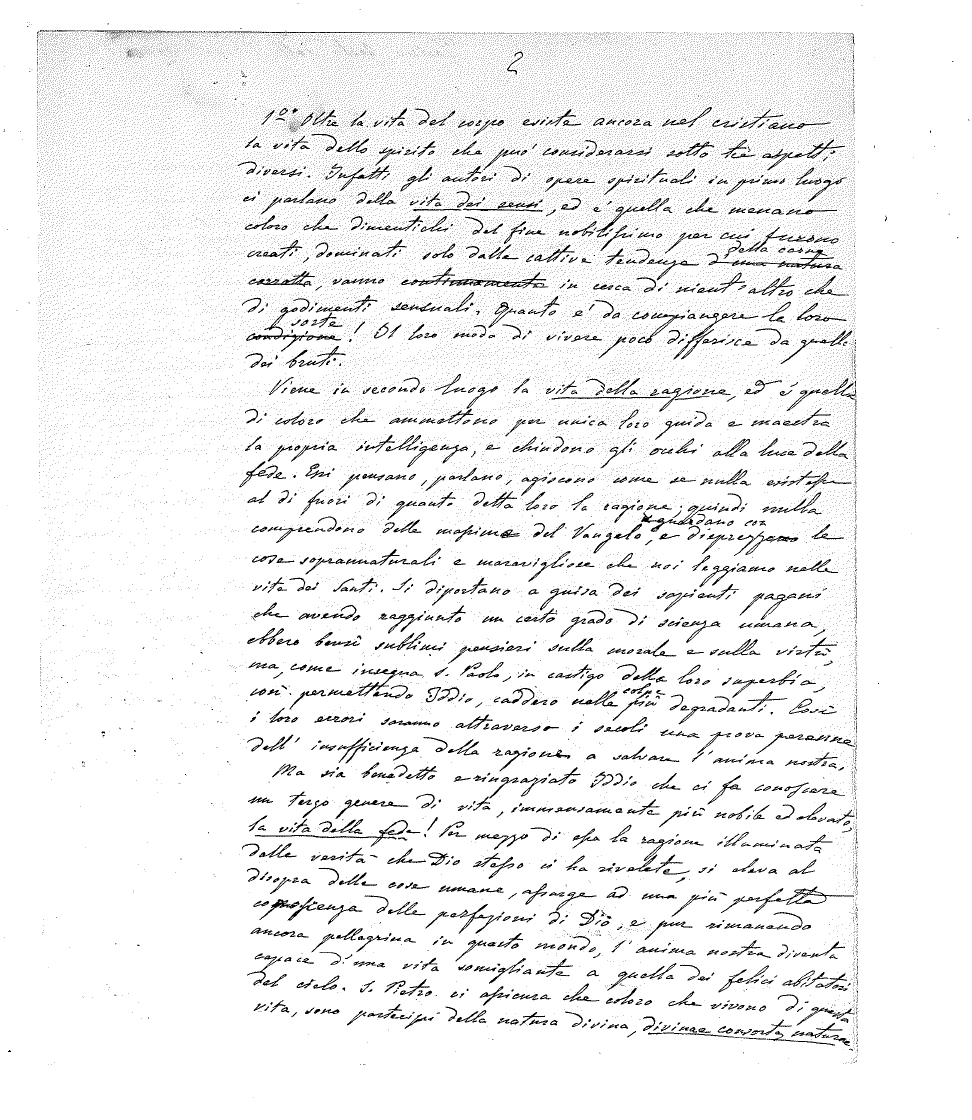 2
1º. Oltre la vita del corpo esiste ancora nel cristiano
la vita dello spirito che può considerarsi sotto tre aspetti
diversi. Infatti gli autori di opere spirituali in primo luogo
ci parlano della vita dei sensi, ed è quella che menano
coloro che dimentichi del fine nobilissimo per cui furono
della carne
creati, dominati solo dalle cattive tendenze d'una natura
corrotta, vanno continuamente in cerca di nient'altro che
di godimenti sensuali. Quanto è da compiangere la loro
sorte
condizione! Il loro modo di vivere poco differisce da quello
dei bruti.
Viene in secondo luogo la vita della ragione, ed è quella
di coloro che ammettono per unica loro guida e maestra
la propria intelligenza, e chiudono gli occhi alla luce della
fede. Essi pensano, parlano, agiscono come se nulla esistesse
al di fuori di quanto detta loro la ragione; quindi nulla
guardano con
comprendono delle massime del Vangelo, e disprezzano le
cose soprannaturali e maravigliose che noi leggiamo nelle
vite dei Santi. Si diportano a guisa dei sapienti pagani
che avendo raggiunto un certo grado di scienza umana,
ebbero bensì sublimi pensieri sulla morale e sulla virtù,
ma, come insegna S. Paolo, in castigo della loro superbia,
colpe
così permettendo Iddio, caddero nelle più degradanti. Così
i loro errori saranno attraverso i secoli una prova perenne
dell'insufficienza della ragione a salvare l'anima nostra.
Ma sia benedetto e ringraziato Iddio che ci fa conoscere
un terzo genere di vita, immensamente più nobile ed elevato,
la vita della fede! Per mezzo di essa la ragione illuminata
dalle verità che Dio stesso ci ha rivelate, si eleva al
disopra delle cose umane, assorge ad una più perfetta
conoscenza delle perfezioni di Dio, e pur rimanendo
ancora pellegrina in questo mondo, l'anima nostra diventa
capace d'una vita somigliante a quella dei felici abitatori
del cielo. S. Pietro ci assicura che coloro che vivono di questa
vita, sono partecipi della natura divina, divinae consortes naturae.